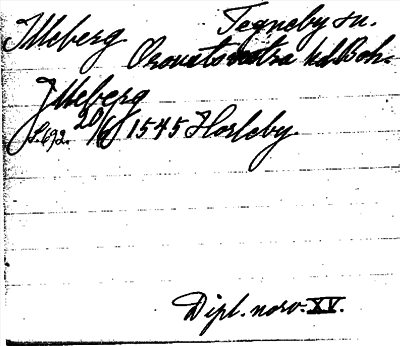 Illeberg Tegneby sn.
Orousts västra hd. Boh.
Illeberg
S. 692. 20/6 1545 Horleby.
Dipl. norv. XV.